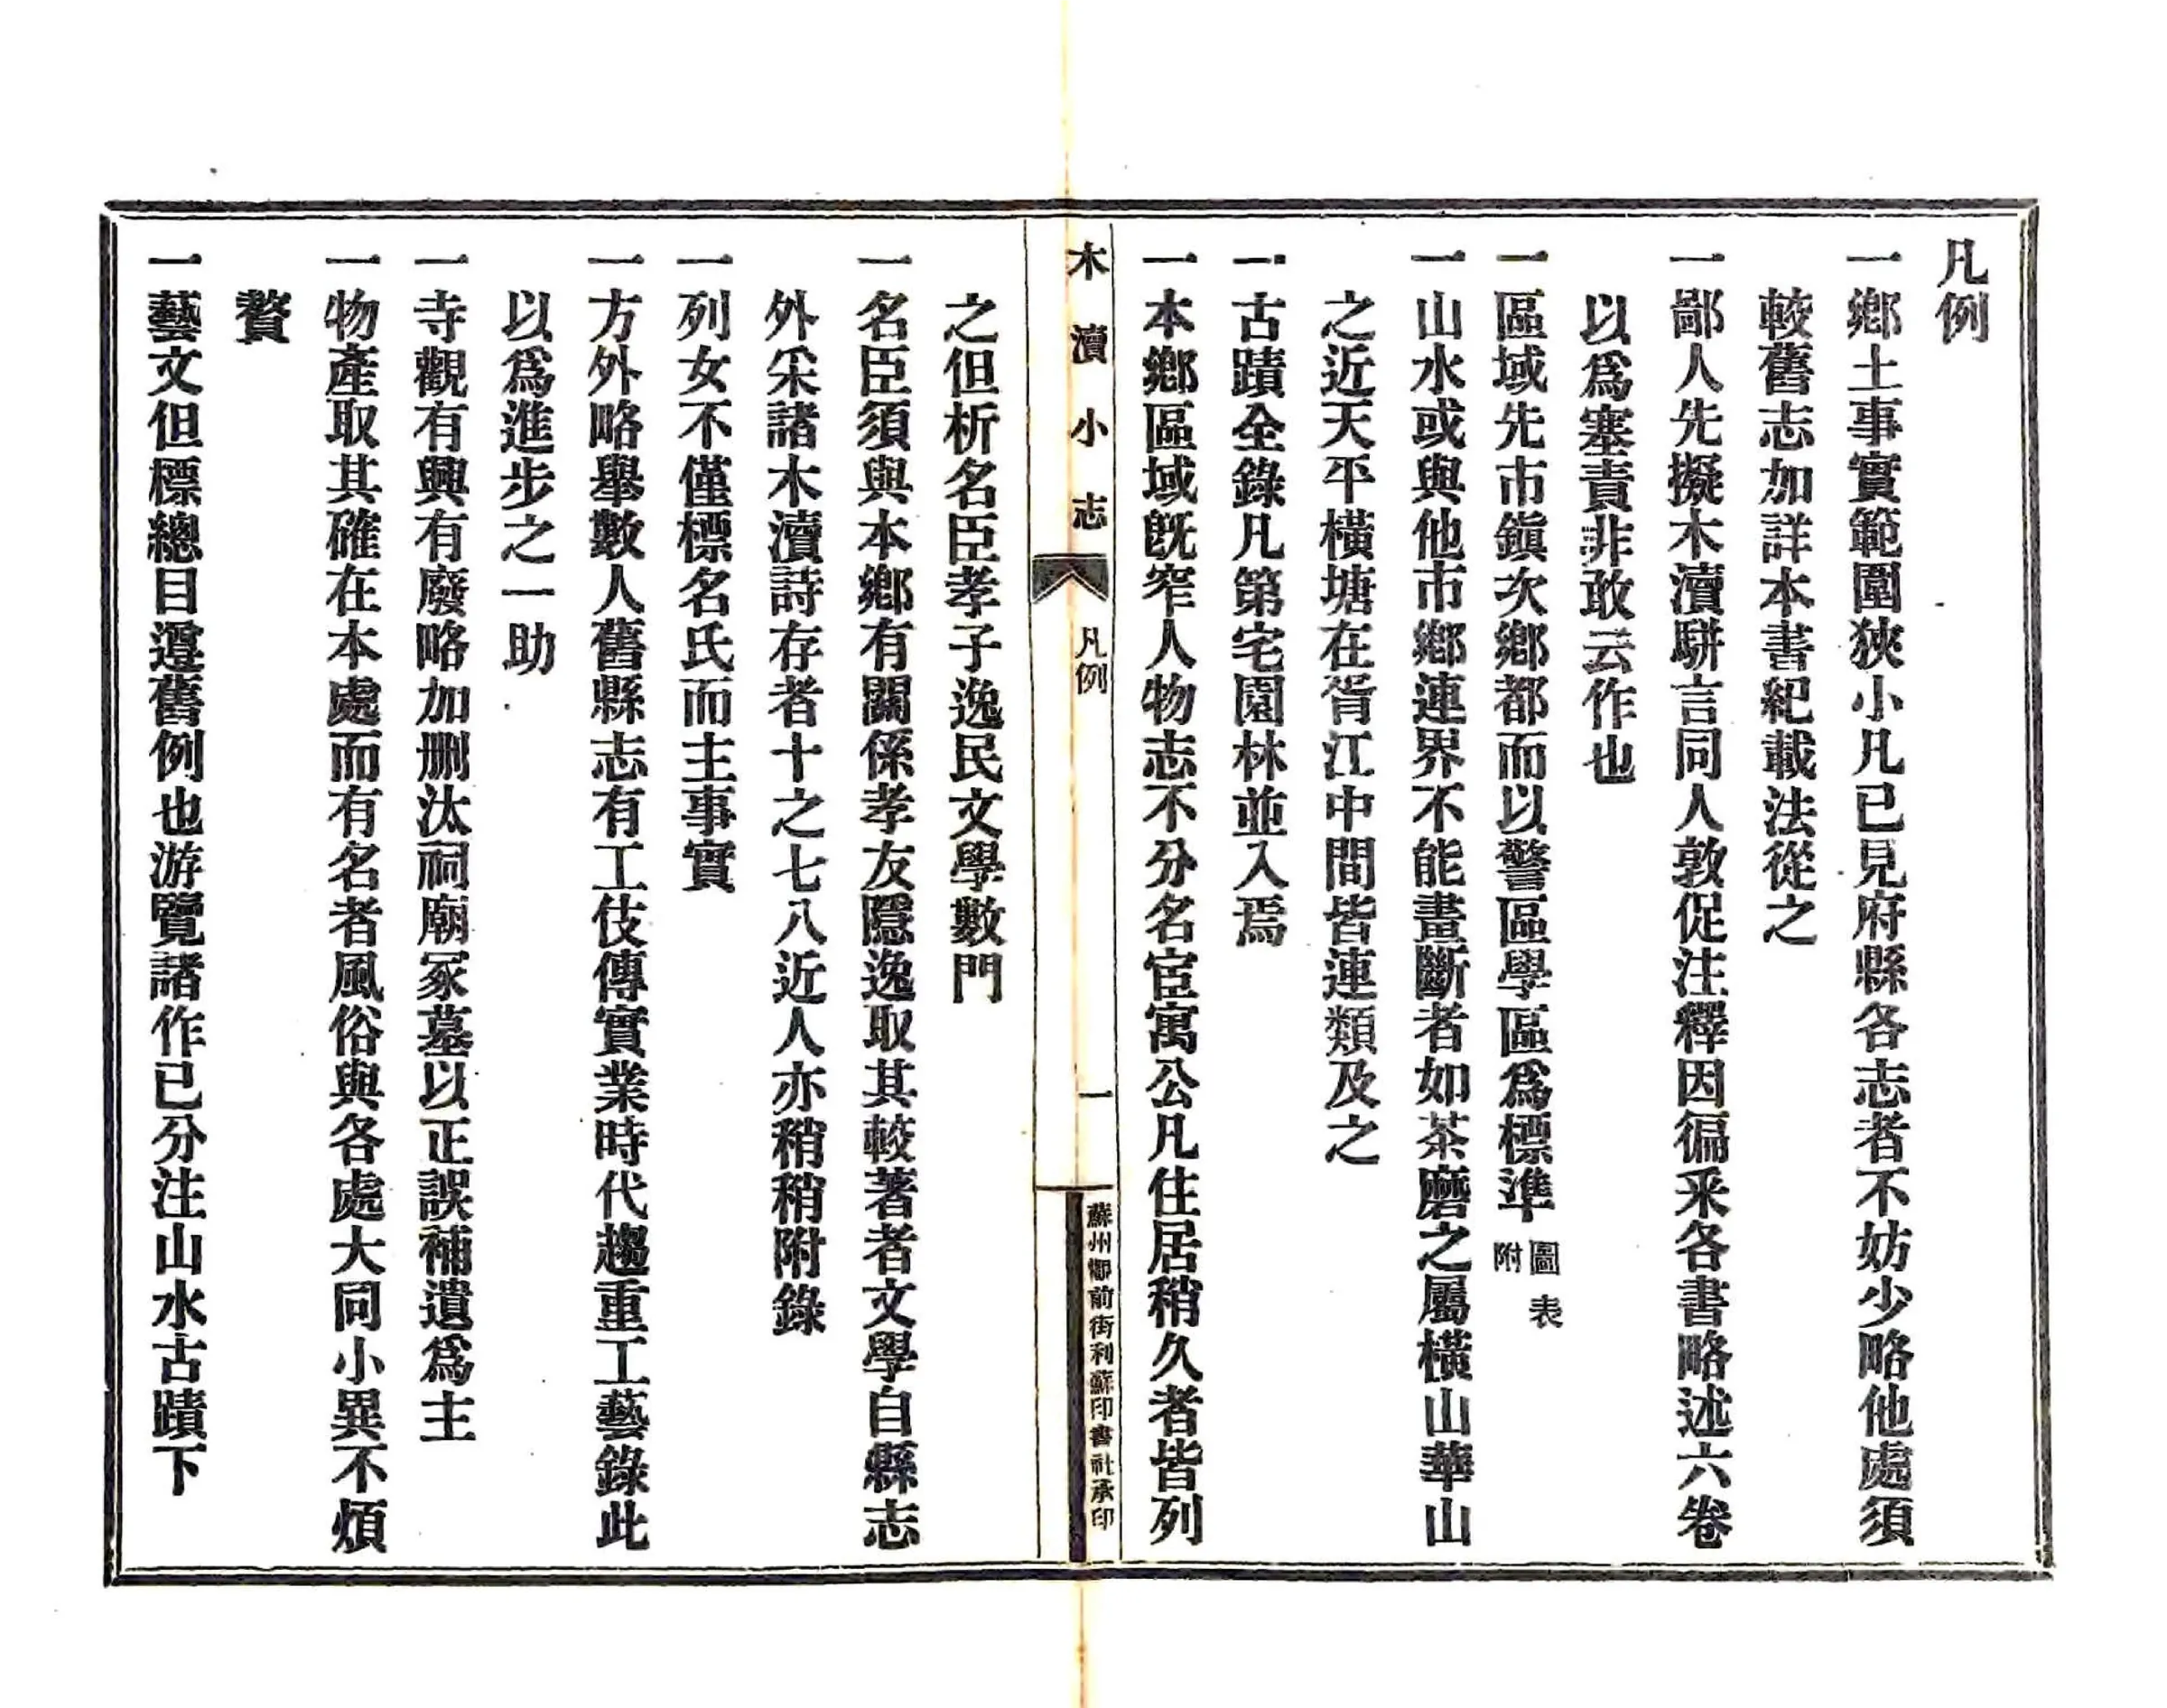 凡例
一鄉土事實範圍狹小凡已見府縣各志者不妨少略他處須
較舊志加詳本書紀載法從之
一鄙人先擬木瀆駢言同人敦促注釋因徧釆各書略述六卷
以爲塞責非敢云作也
一區域先市鎭次鄉都而以警區學區爲標準圖表附
一山水或與他市鄉連界不能畫斷者如茶磨之屬橫山華山
之近天平橫塘在胥江中間皆連類及之
一古蹟全錄凡第宅園林並入焉
一本鄉區域旣窄人物志不分名宦寓公凡住居稍久者皆列
木瀆小志
凡例
一
蘇州鄉前街利蘇印書社承印
之但析名臣孝子逸民文學數門
一名臣須與本鄉有關係孝友隱逸取其較著者文學自縣志
外采諸木瀆詩存者十之七八近人亦稍稍附錄
一列女不僅標名氏而主事實
一方外略舉數人舊縣志有工伎傳實業時代趨重工藝錄此
以爲進步之一助
一寺觀有興有廢略加刪汰祠廟冢墓以正誤補遺爲主
一物產取其確在本處而有名者風俗與各處大同小異不煩
贅
一藝文但標總目遵舊例也游覽諸作已分注山水古蹟下